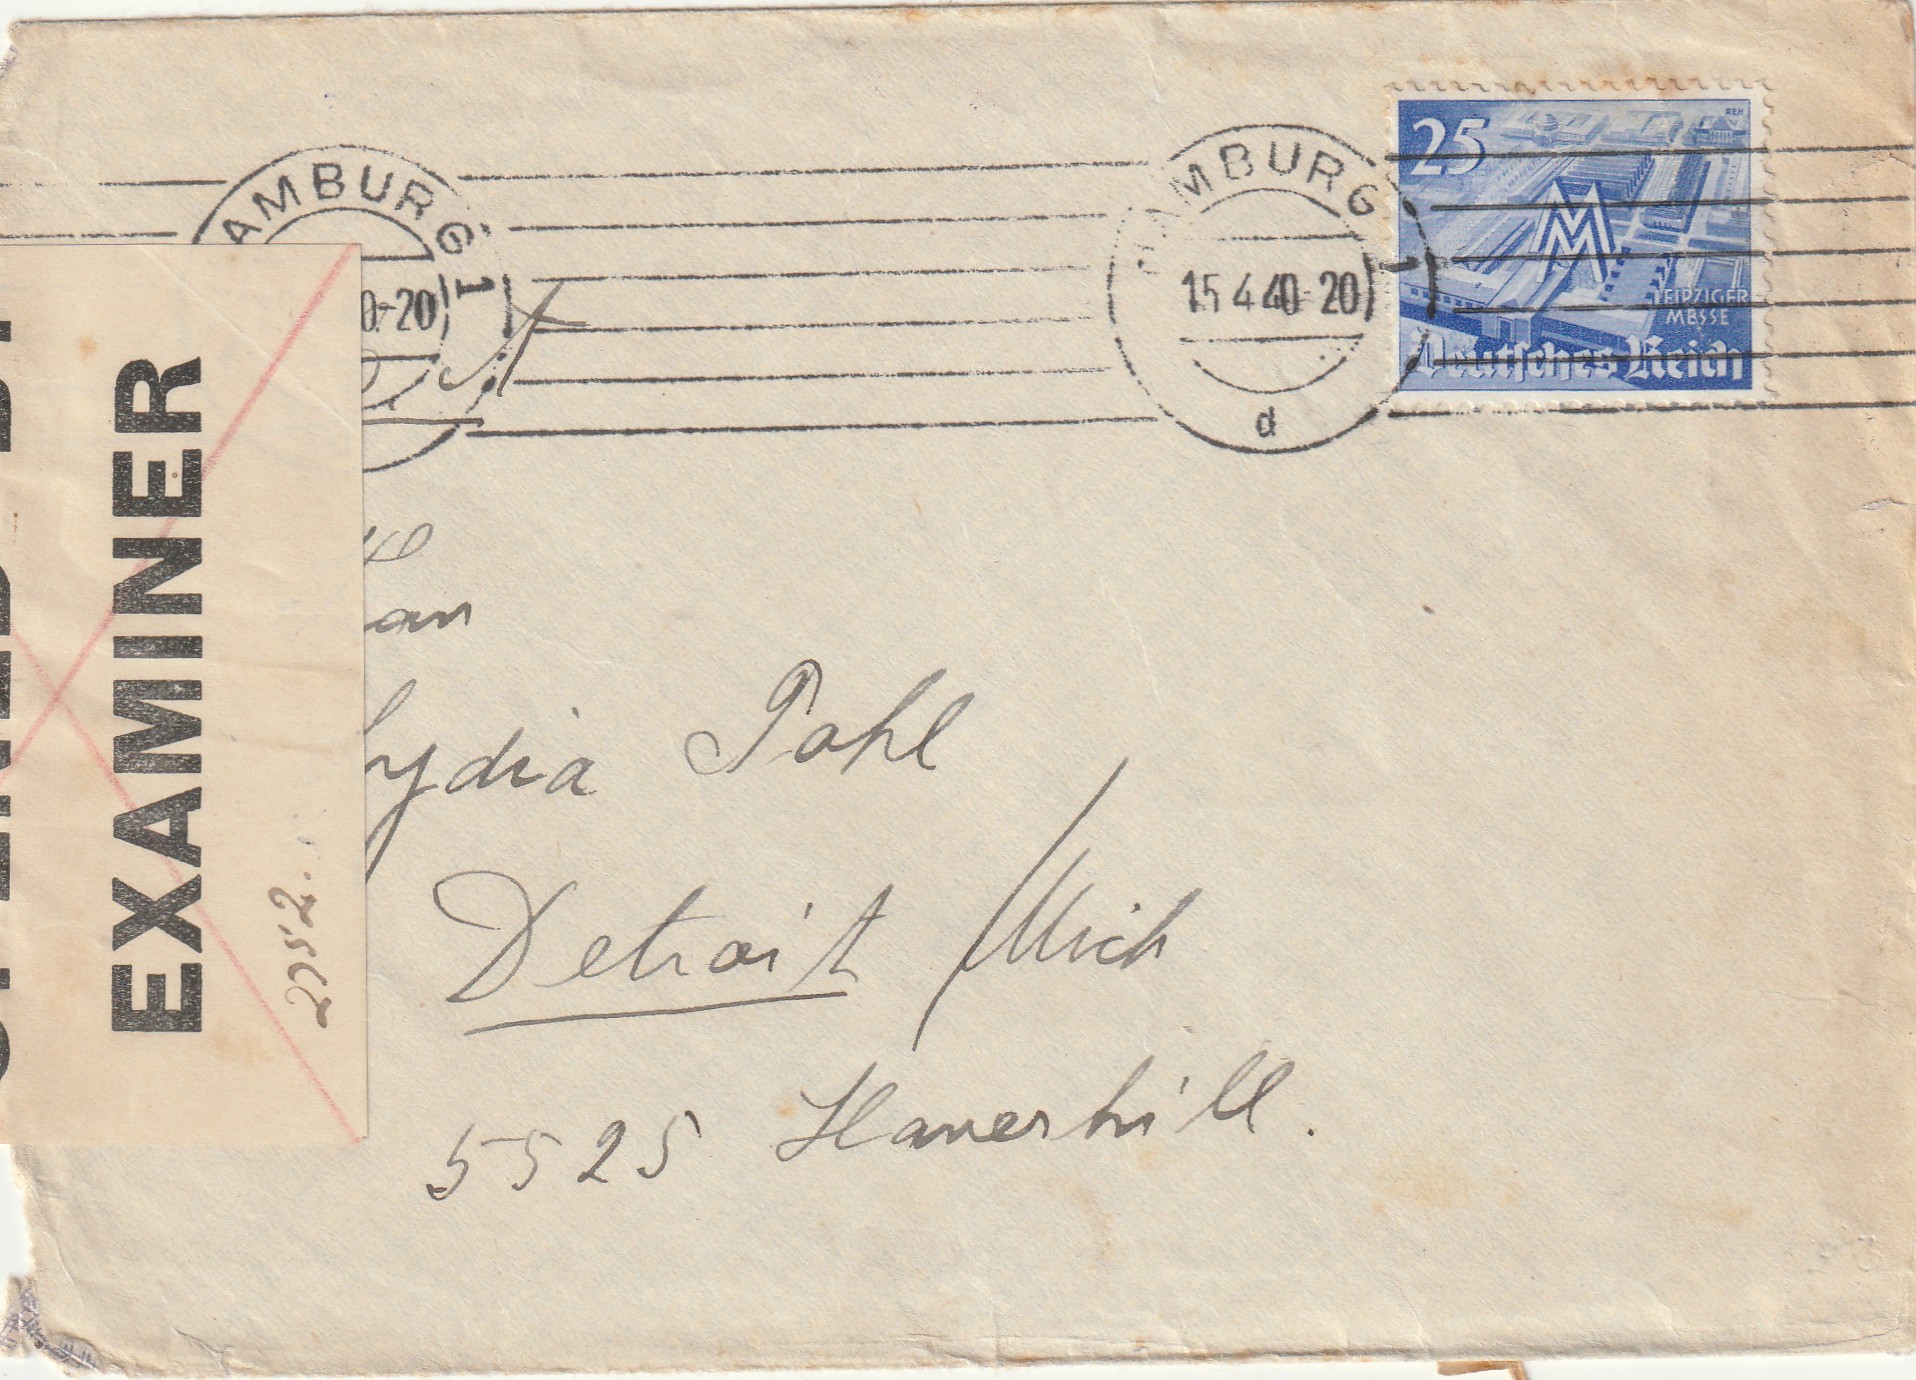 HAMBURG 1
15.4.40-20
d
AMBURG 1
0-20
25
REH
MM
LEIPZIGER
MESSE
Deutsches Reich
EXAMINER
2752
an
Lydia Pohl
Detroit / Mich
5525 Haverhill.